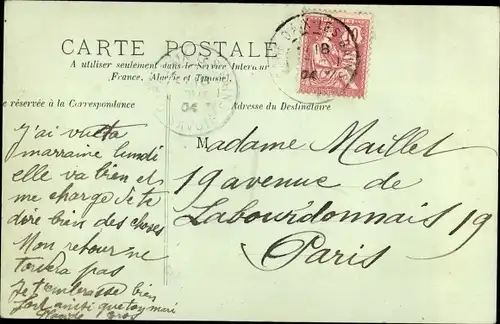 CARTE POSTALE
A utiliser seulement dans le Service Interieur
(France, Algérie et Tunisie).
e réservée à la Correspondance
Adresse du Destinataire
10
04
04
J'ai vu ta
marraine lundi
elle va bien et
me charge de te
dire bien des choses
Mon retour ne
pas
Je t'embrasse bien
fort ainsi que ton mari
Madame Maillet
19 avenue de
Labourdonnais 19
Paris